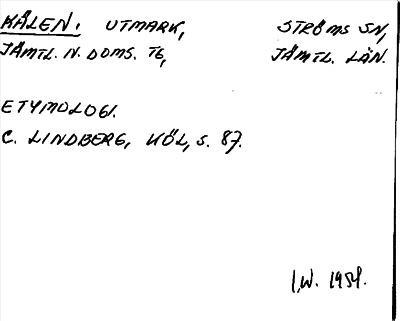 KÅLEN. UTMARK, STRÖMS SN,
JÄMTL. N. DOMS. TG, JÄMTL. LÄN.
ETYMOLOGI.
C. LINDBERG, KÖL, S. 87.
I.W. 1954.